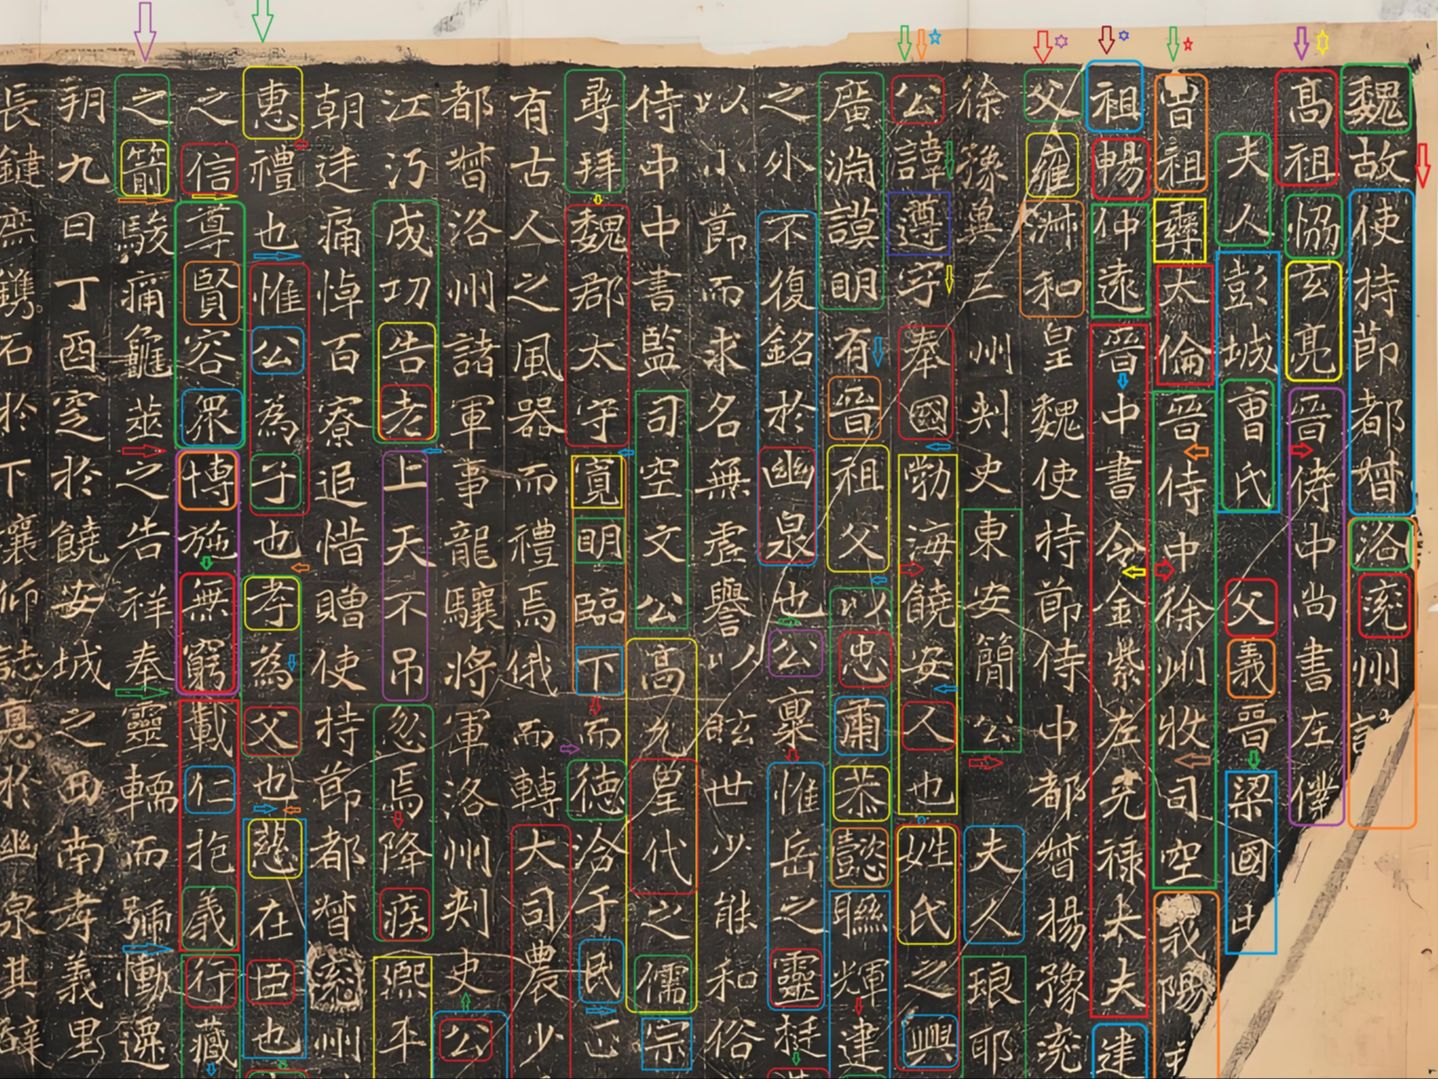 魏故使持節都督洛兗州
髙祖協玄亮晉侍中尚書左僕
夫人彭城曹氏　父義晉梁國
曾祖彝太倫晉侍中徐州牧司空義陽
祖暢仲遠晉中書令金紫左光禄大夫建
父雍淑和皇魏使持節侍中都督揚豫兗
徐豫冀三州刾史東安簡公　夫人琅耶
公諱遵字奉國勃海饒安人也姓氏之興
廣淵謨明有晉祖父以忠肅恭懿聯輝建
之外不復銘於幽泉也公稟惟岳之靈挺
以小節而求名無虛譽以眩世少能和俗
侍中中書監司空文公高允皇代之儒宗
尋拜魏郡太守寬明臨下而德洽于民正
有古人之風器而禮焉俄而轉大司農少
都督洛州諸軍事龍驤將軍洛州刾史公
江沔戍切告老上天不吊忽焉降疾熙平
朝廷痛悼百寮追惜贈使持節都督兗州
惠禮也惟公為子也孝為父也慈在臣也
之信尊賢容眾博施無窮載仁抱義行藏
之箭駿痛龜筮之告祥奉靈輀而號慟遷
朔九日丁酉窆於饒安城之西南孝義里
長鍵庶鐫石於下壤仰誌惪於幽泉其辭